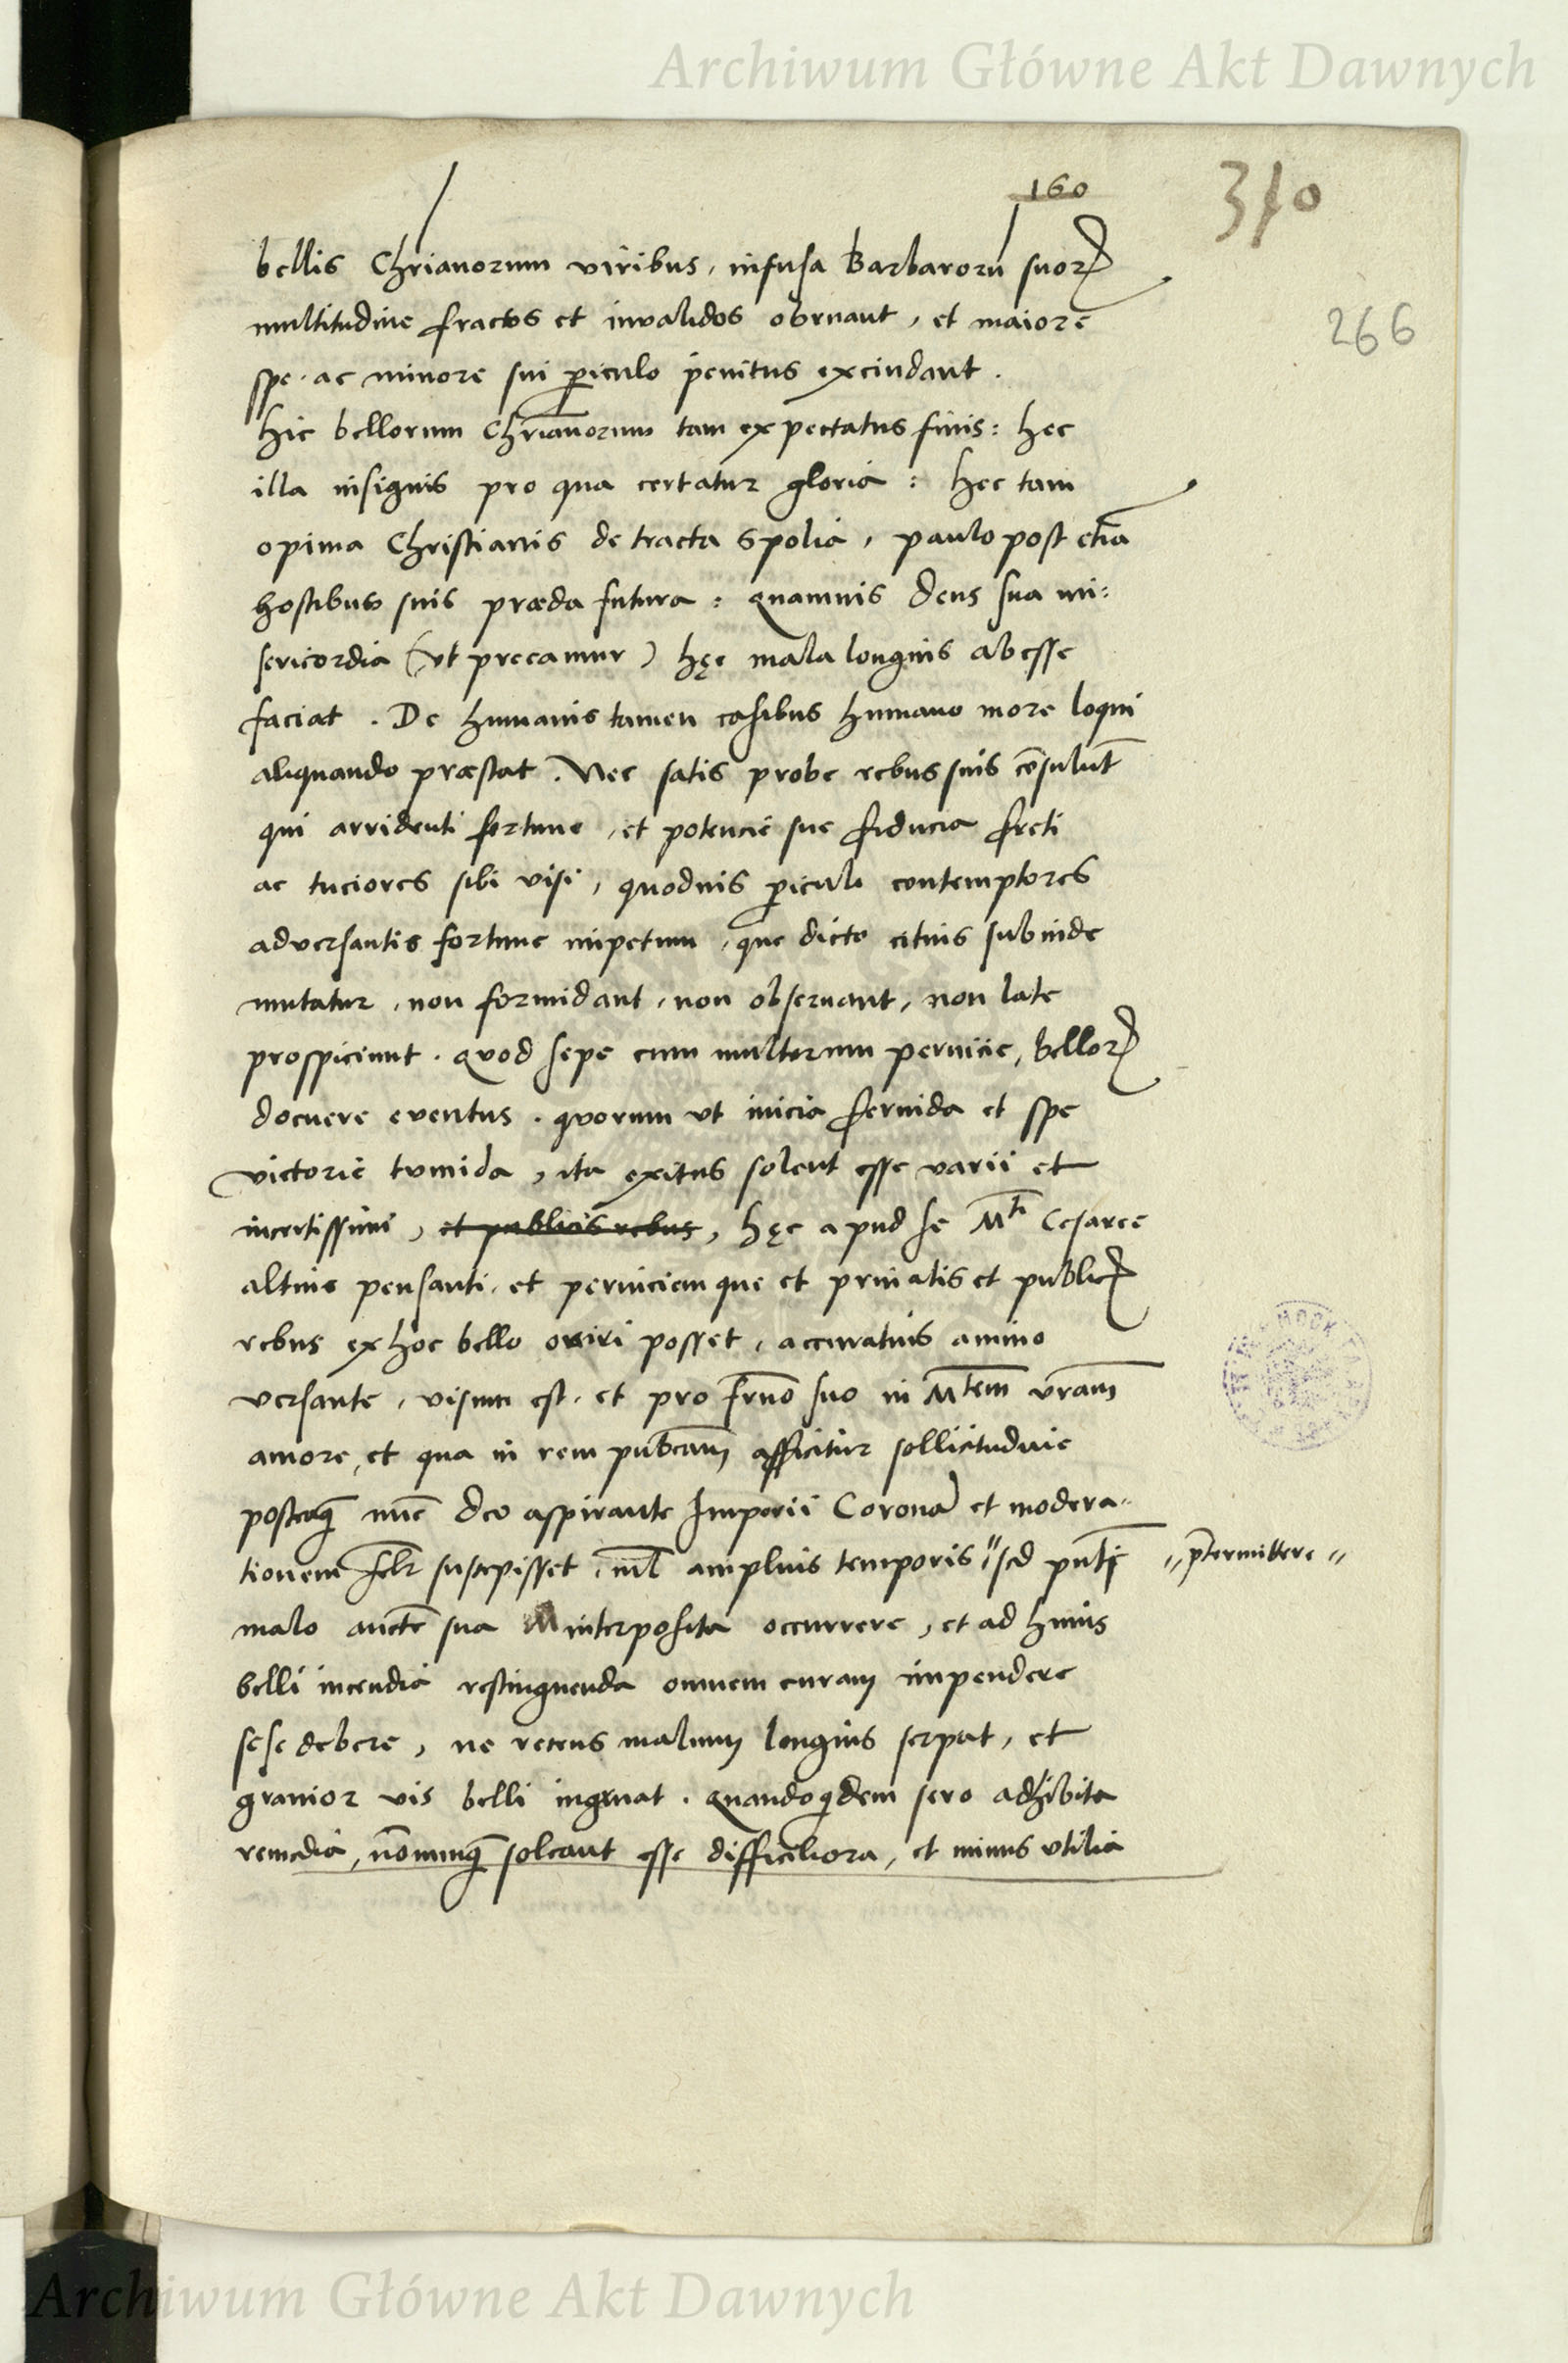 Archiwum Główne Akt Dawnych
160
310
266
bellis Chrianorum viribus, infusa Barbarorū suorꝝ
multitudine fractos et invalidos obruant, et maiore
spe ac minore sui ꝑiculo penitus exciudant.
Hic bellorum Chr̄ianorum tam expectatus finis: hec
illa insignis pro qua certatur gloria: hec tam
opima Christianis detracta spolia, paulo post etiā
hostibus suis præda futura: quamuis deus sua mi:
sericordia (vt precamur) hęc mala longius abesse
faciat. De humanis tamen casibus humano more loqui
aliquando præstat. Nec satis probe rebus suis cōsulūt
qui arridenti fortune, et potencie sue fiducia freti
ac tuciores sibi visi, quoduis ꝑiculi contemptores
adversantis fortune impetum, que dicto citius subinde
mutatur, non formidant, non obseruant, non late
prospiciunt. quod sepe cum multorum pernicie, bellorꝝ
docuere eventus. quorum vt inicia feruida et spe
victorie tumida, ita exitus solent esse varii et
incertissimi, et publicis rebus, hęc apud se Mti Cesaree
altius pensanti, et perniciem que et priuatis et publicꝭ
rebus ex hoc bello oriri posset, accuratius animo
versante, visum est, et pro fr̄no suo in Mtem vr̄am
amore, et qua in rem pub̄cam afficitur sollicitudine
posteaꝗ̄ nūc deo aspirante Imperii Corona et modera-
tionem fel̄r suscepisset, nil̄ amplius temporis "sed pn̄ti "p̄termittere"
malo aucte sua interposita occurrere, et ad huius
belli incendia restinguenda omnem curam impendere
sese debere, ne recens malum longius serpat, et
grauior vis belli ingruat. quandoqdem sero adhibita
remedia, nōnunꝗ̄ soleant esse difficiliora, et minus vtilia
Archiwum Główne Akt Dawnych